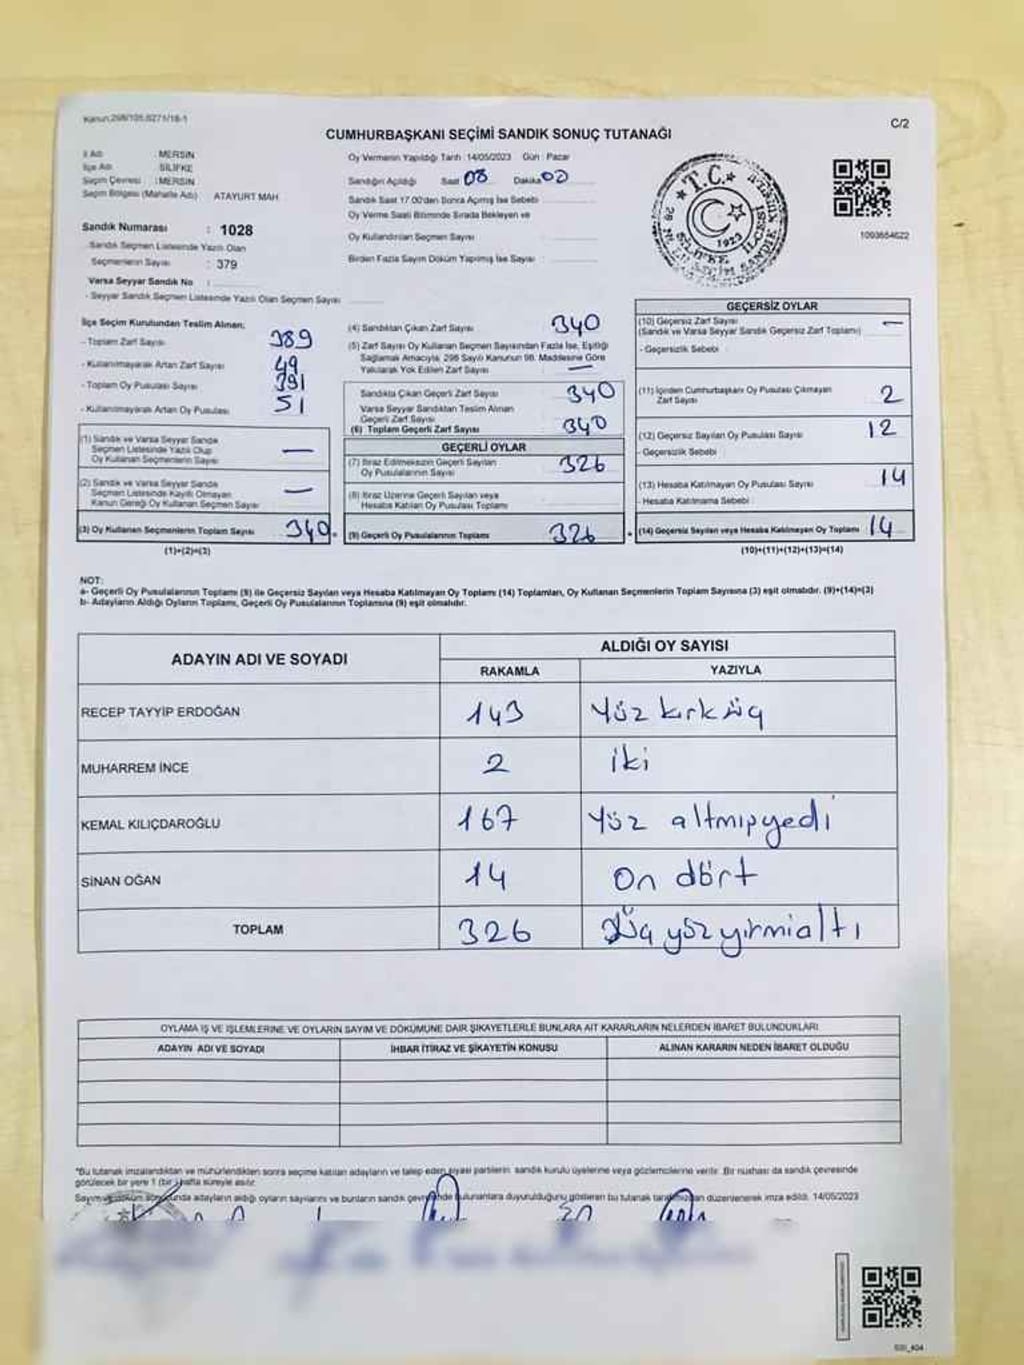 Kanun:298/105,6271/18-1
C/2
CUMHURBAŞKANI SEÇİMİ SANDIK SONUÇ TUTANAĞI
İl Adı : MERSİN
İlçe Adı : SİLİFKE
Seçim Çevresi : MERSİN
Seçim Bölgesi (Mahalle Adı) ATAYURT MAH.
Sandık Numarası : 1028
Sandık Seçmen Listesinde Yazılı Olan
Seçmenlerin Sayısı : 379
Varsa Seyyar Sandık No :
- Seyyar Sandık Seçmen Listesinde Yazılı Olan Seçmen Sayısı
Oy Vermenin Yapıldığı Tarih :14/05/2023 Gün : Pazar
Sandığın Açıldığı Saat 08 Dakika 00
Sandık Saat 17.00'den Sonra Açılmış İse Sebebi
Oy Verme Saati Bitiminde Sırada Bekleyen ve
Oy Kullandırılan Seçmen Sayısı :
Birden Fazla Sayım Döküm Yapılmış İse Sayısı :
T.C.
1923
1093654622
İlçe Seçim Kurulundan Teslim Alınan;
- Toplam Zarf Sayısı 389
- Kullanılmayarak Artan Zarf Sayısı 49
- Toplam Oy Pusulası Sayısı 391
- Kullanılmayarak Artan Oy Pusulası 51
(1) Sandık ve Varsa Seyyar Sandık
Seçmen Listesinde Yazılı Olup
Oy Kullanan Seçmenlerin Sayısı —
(2) Sandık ve Varsa Seyyar Sandık
Seçmen Listesinde Kayıtlı Olmayan
Kanun Gereği Oy Kullanan Seçmen Sayısı —
(3) Oy Kullanan Seçmenlerin Toplam Sayısı 340
(1)+(2)=(3)
(4) Sandıktan Çıkan Zarf Sayısı 340
(5) Zarf Sayısı Oy Kullanan Seçmen Sayısından Fazla İse, Eşitliği
Sağlamak Amacıyla, 298 Sayılı Kanunun 98. Maddesine Göre
Yakılarak Yok Edilen Zarf Sayısı —
Sandıkta Çıkan Geçerli Zarf Sayısı 340
Varsa Seyyar Sandıktan Teslim Alınan
Geçerli Zarf Sayısı
(6) Toplam Geçerli Zarf Sayısı 340
GEÇERLİ OYLAR
(7) İtiraz Edilmeksizin Geçerli Sayılan
Oy Pusulalarının Sayısı 326
(8) İtiraz Üzerine Geçerli Sayılan veya
Hesaba Katılan Oy Pusulası Toplamı
(9) Geçerli Oy Pusulalarının Toplamı 326
GEÇERSİZ OYLAR
(10) Geçersiz Zarf Sayısı
(Sandık ve Varsa Seyyar Sandık Geçersiz Zarf Toplamı) —
- Geçersizlik Sebebi :
(11) İçinden Cumhurbaşkanı Oy Pusulası Çıkmayan
Zarf Sayısı 2
(12) Geçersiz Sayılan Oy Pusulası Sayısı 12
- Geçersizlik Sebebi :
(13) Hesaba Katılmayan Oy Pusulası Sayısı 14
- Hesaba Katılmama Sebebi :
(14) Geçersiz Sayılan veya Hesaba Katılmayan Oy Toplamı 14
(10)+(11)+(12)+(13)=(14)
NOT:
a- Geçerli Oy Pusulalarının Toplamı (9) ile Geçersiz Sayılan veya Hesaba Katılmayan Oy Toplamı (14) Toplamları, Oy Kullanan Seçmenlerin Toplam Sayısına (3) eşit olmalıdır. (9)+(14)=(3)
b- Adayların Aldığı Oyların Toplamı, Geçerli Oy Pusulalarının Toplamına (9) eşit olmalıdır.
ADAYIN ADI VE SOYADI
ALDIĞI OY SAYISI
RAKAMLA YAZIYLA
RECEP TAYYİP ERDOĞAN 143 Yüz kırküç
MUHARREM İNCE 2 iki
KEMAL KILIÇDAROĞLU 167 Yüz altmışyedi
SİNAN OĞAN 14 On dört
TOPLAM 326 Üç yüz yirmialtı
OYLAMA İŞ VE İŞLEMLERİNE VE OYLARIN SAYIM VE DÖKÜMÜNE DAİR ŞİKAYETLERLE BUNLARA AİT KARARLARIN NELERDEN İBARET BULUNDUKLARI
ADAYIN ADI VE SOYADI İHBAR İTİRAZ VE ŞİKAYETİN KONUSU ALINAN KARARIN NEDEN İBARET OLDUĞU
*Bu tutanak imzalandıktan ve mühürlendikten sonra seçime katılan adayların ve talep eden siyasi partilerin sandık kurulu üyelerine veya gözlemcilerine verilir. Bir nüshası da sandık çevresinde
görülecek bir yere 1 (bir) hafta süreyle asılır.
Sayım ve döküm sonucunda adayların aldığı oyların sayılarını ve bunların sandık çevresinde bulunanlara duyurulduğunu gösteren bu tutanak tarafımızdan düzenlenerek imza edildi. 14/05/2023